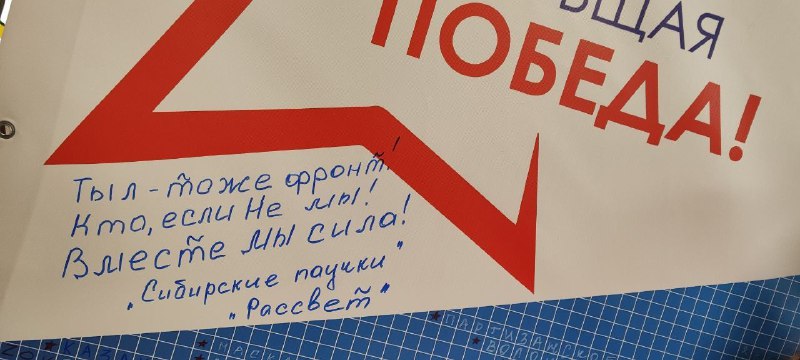 ПОБЕДА!
Тыл - тоже фронт!
Кто, если Не мы!
Вместе мы сила!
„Сибирские паучки"
„Рассвет"
ПАРТИЗАНСКОЕ